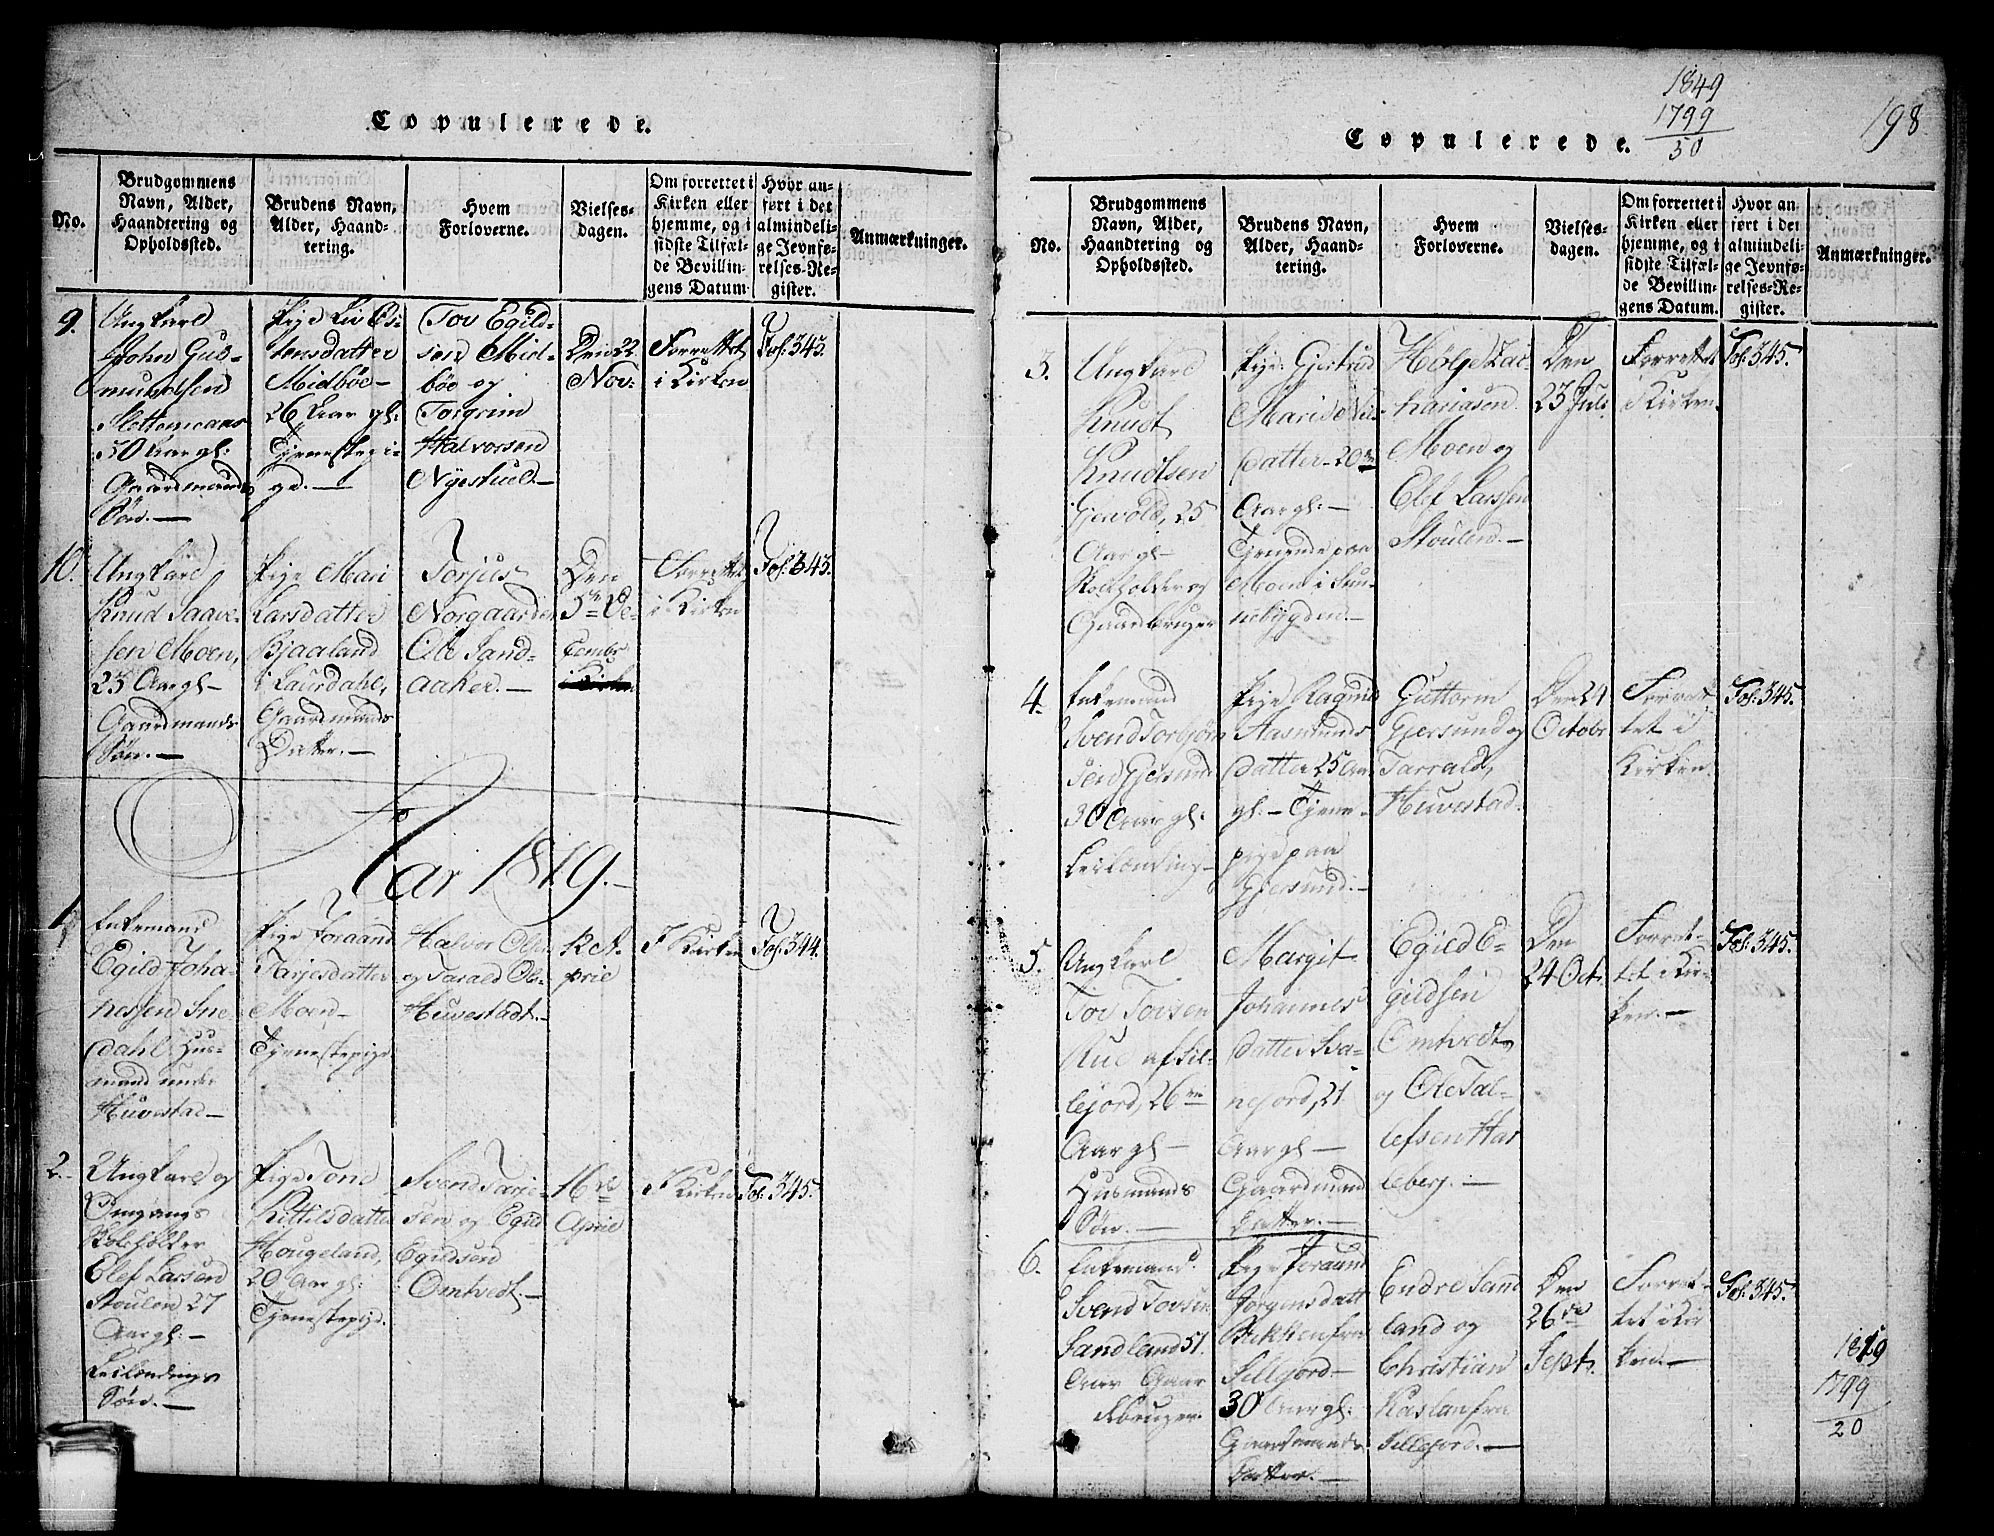 Copulerede.
No.
Brudgommens
Navn, Alder,
Haandtering og
Opholdssted.
Brudens Navn,
Alder, Haand-
tering.
Hvem
Forloverne.
Vielses-
dagen.
Om forrettet i
Kirken eller
hjemme, og i
sidste Tilfæl-
de Bevillin-
gens Datum
Hvor an-
ført i det
almindeli-
ge Jevnfø-
relses-Re-
gister.
Anmærkninger.
9.
Ungkarl
John Gus-
mundsen
30 Aar gl:
Gaardmands
Søn.—
Pige Liv
tensdatter
Midböe-
26 Aar gl:
Tjenestepi-
ge.—
Tov Egild-
sen Mid-
böe og
Torgrim
Halvorsen
Nyestuel.—
Den 22
Nov:
Forrettet
i Kirken
Fol: 345.
10.
Ungkarl
Knud Saave-
sen Moen,
23 Aar gl-
Gaardmands
Søn.—
Pige Mari
Larsdatter
Bjaaland
i Laurdahl,
Gaardmands
Datter.—
Torjus
Norgaarden
Ole Sand-
aaker.—
Den
De-
cembr
Forrettet
i Kirken
Fol: 345.
Aar 1819.—
1.
Enkemand
Egild Joha-
nessen Sne-
dahl Hus-
mand under
Huvestad—
Pige Joraand
Tarjesdatter
Moen-
Tjenestepige
Halvor Ols:
og Tarald Ols-
Huvestadt.—
pril
I Kirken
Fol: 344.
2.
Ungkarl og
Omgangs
Skoleholder
Olef Larsen
Stoulen 27
Aar gl:—
Leilændings
Søn.—
Pige Tone
Kittilsdatter
Hougeland,
20 Aar gl:
Tjenestepige
Svend Tarje-
sen og Egild
Egildsen
Omtvedt.—
16de
April
I Kirken
Fol: 345.
1849
1799
50
198
Copulerede.
No.
Brudgommens
Navn, Alder,
Haandtering og
Opholdssted.
Brudens Navn,
Alder, Haand-
tering.
Hvem
Forloverne.
Vielses-
dagen.
Om forrettet i
Kirken eller
hjemme, og i
sidste Tilfæl-
de Bevillin-
gens Datum.
Hvor an-
ført i det
almindeli-
ge Jevnfø-
relses-Re-
gister.
Anmærkninger.
3.
Ungkarl
Knudt
Knudtsen
Gjevold, 25
Aar gl-
Skoleholder og
Gaardbruger
Pige: Gjertrud
Marie
datter- 20
Aar gl:—
Tjenende paa
Moen i
nebygden.—
Hølje Zac-
hariasen
Moen og
Olef Larssen
Stoulen.—
Den
23 Juli
Forrettet
i Kirken.
Fol: 345.
4.
Enkemand
Svend Torbjørn
sen Gjersund
30 Aar gl:
Leilænding-
Pige Ragnild
Aasmunds
datter 25 Aar
gl:- Tjene-
pige paa
Gjersund.—
Guttorm
Gjersund og
Tarrald,
Huvestad.
Den 24
Octobr
Forret-
tet i
Kirken.
Fol: 345.
5.
Ungkarl
Tov Tovsen
Rue af Sil-
lejord, 26
Aar gl-
Husmands
Søn.—
Margit
Johannes
datter Sva-
nejord, 21
Aar gl-
Gaardmand
Datter.—
Egild E-
gildsen
Omtvedt
og Ole Tal-
lefsen Har
leberj.—
Den
24 Oct.
Forret-
tet i Kir-
ken.—
Fol: 345.
6.
Enkemand
Svend Tovsen
Sandland 51
Aar Gaar
dbruger.
Pige Joraund
Jørgensdatt
Bakken fra
Sillejord-
30 Aar gl:
Gaardmands
Datter.—
Endre Sand
land og
Christian
Kaslan fra
Sillejord.—
Den
26de
Sept.
Forret-
tet i Kir
ken.—
Fol: 345.
1819
1799
20